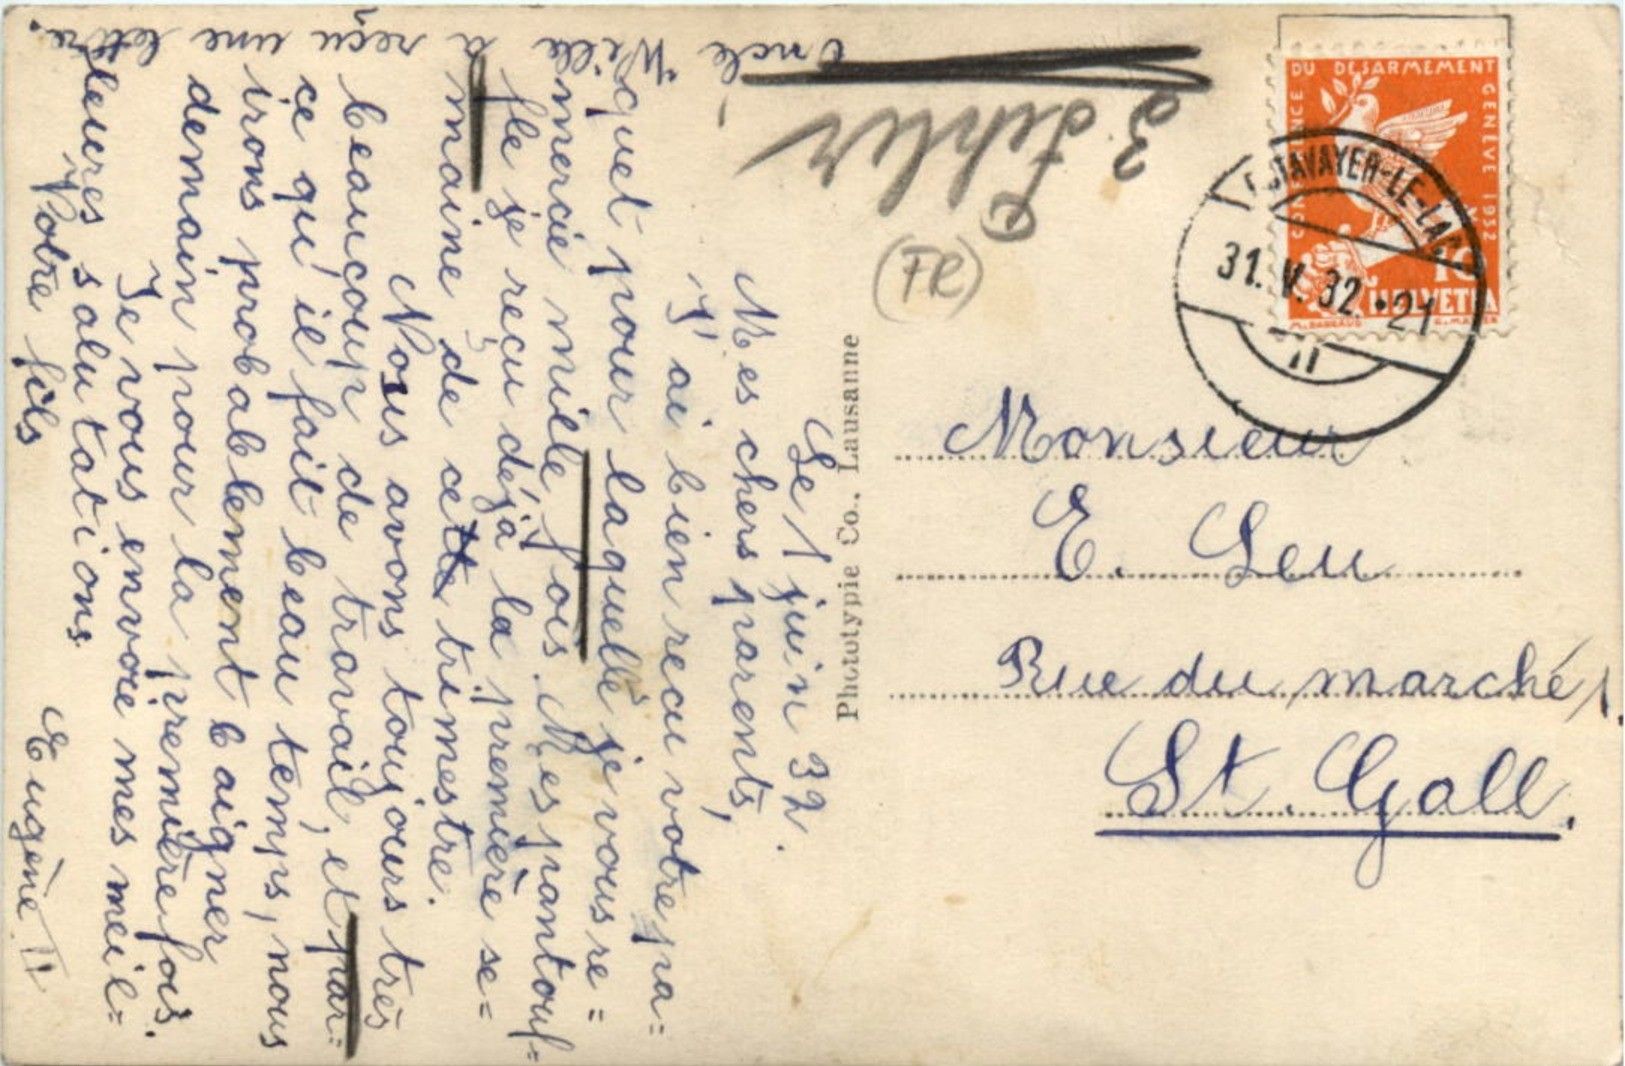 Le 1 juin 32.
Mes chers parents,
J'ai bien reçu votre pa=
quet pour laquelle je vous re=
mercie mille fois. Mes pantouf=
fle je reçu déjà la première se=
maine de cette trimestre.
Nous avons toujours très
beaucoup de travail, et par=
ce qu'il fait beau temps, nous
irons probablement baigner
demain pour la première fois.
Je vous envoie mes meil=
leures salutations
Votre fils
Eugène II
Oncle Willi a reçu une lettre.
3 Fehler
(FR)
Phototypie Co., Lausanne
CONFERENCE DU DESARMEMENT GENEVE 1932
10
HELVETIA
ESTAVAYER-LE-LAC
31.V.32.•21
Monsieur
E. Leu
Rue du marché 1.
St. Gall.